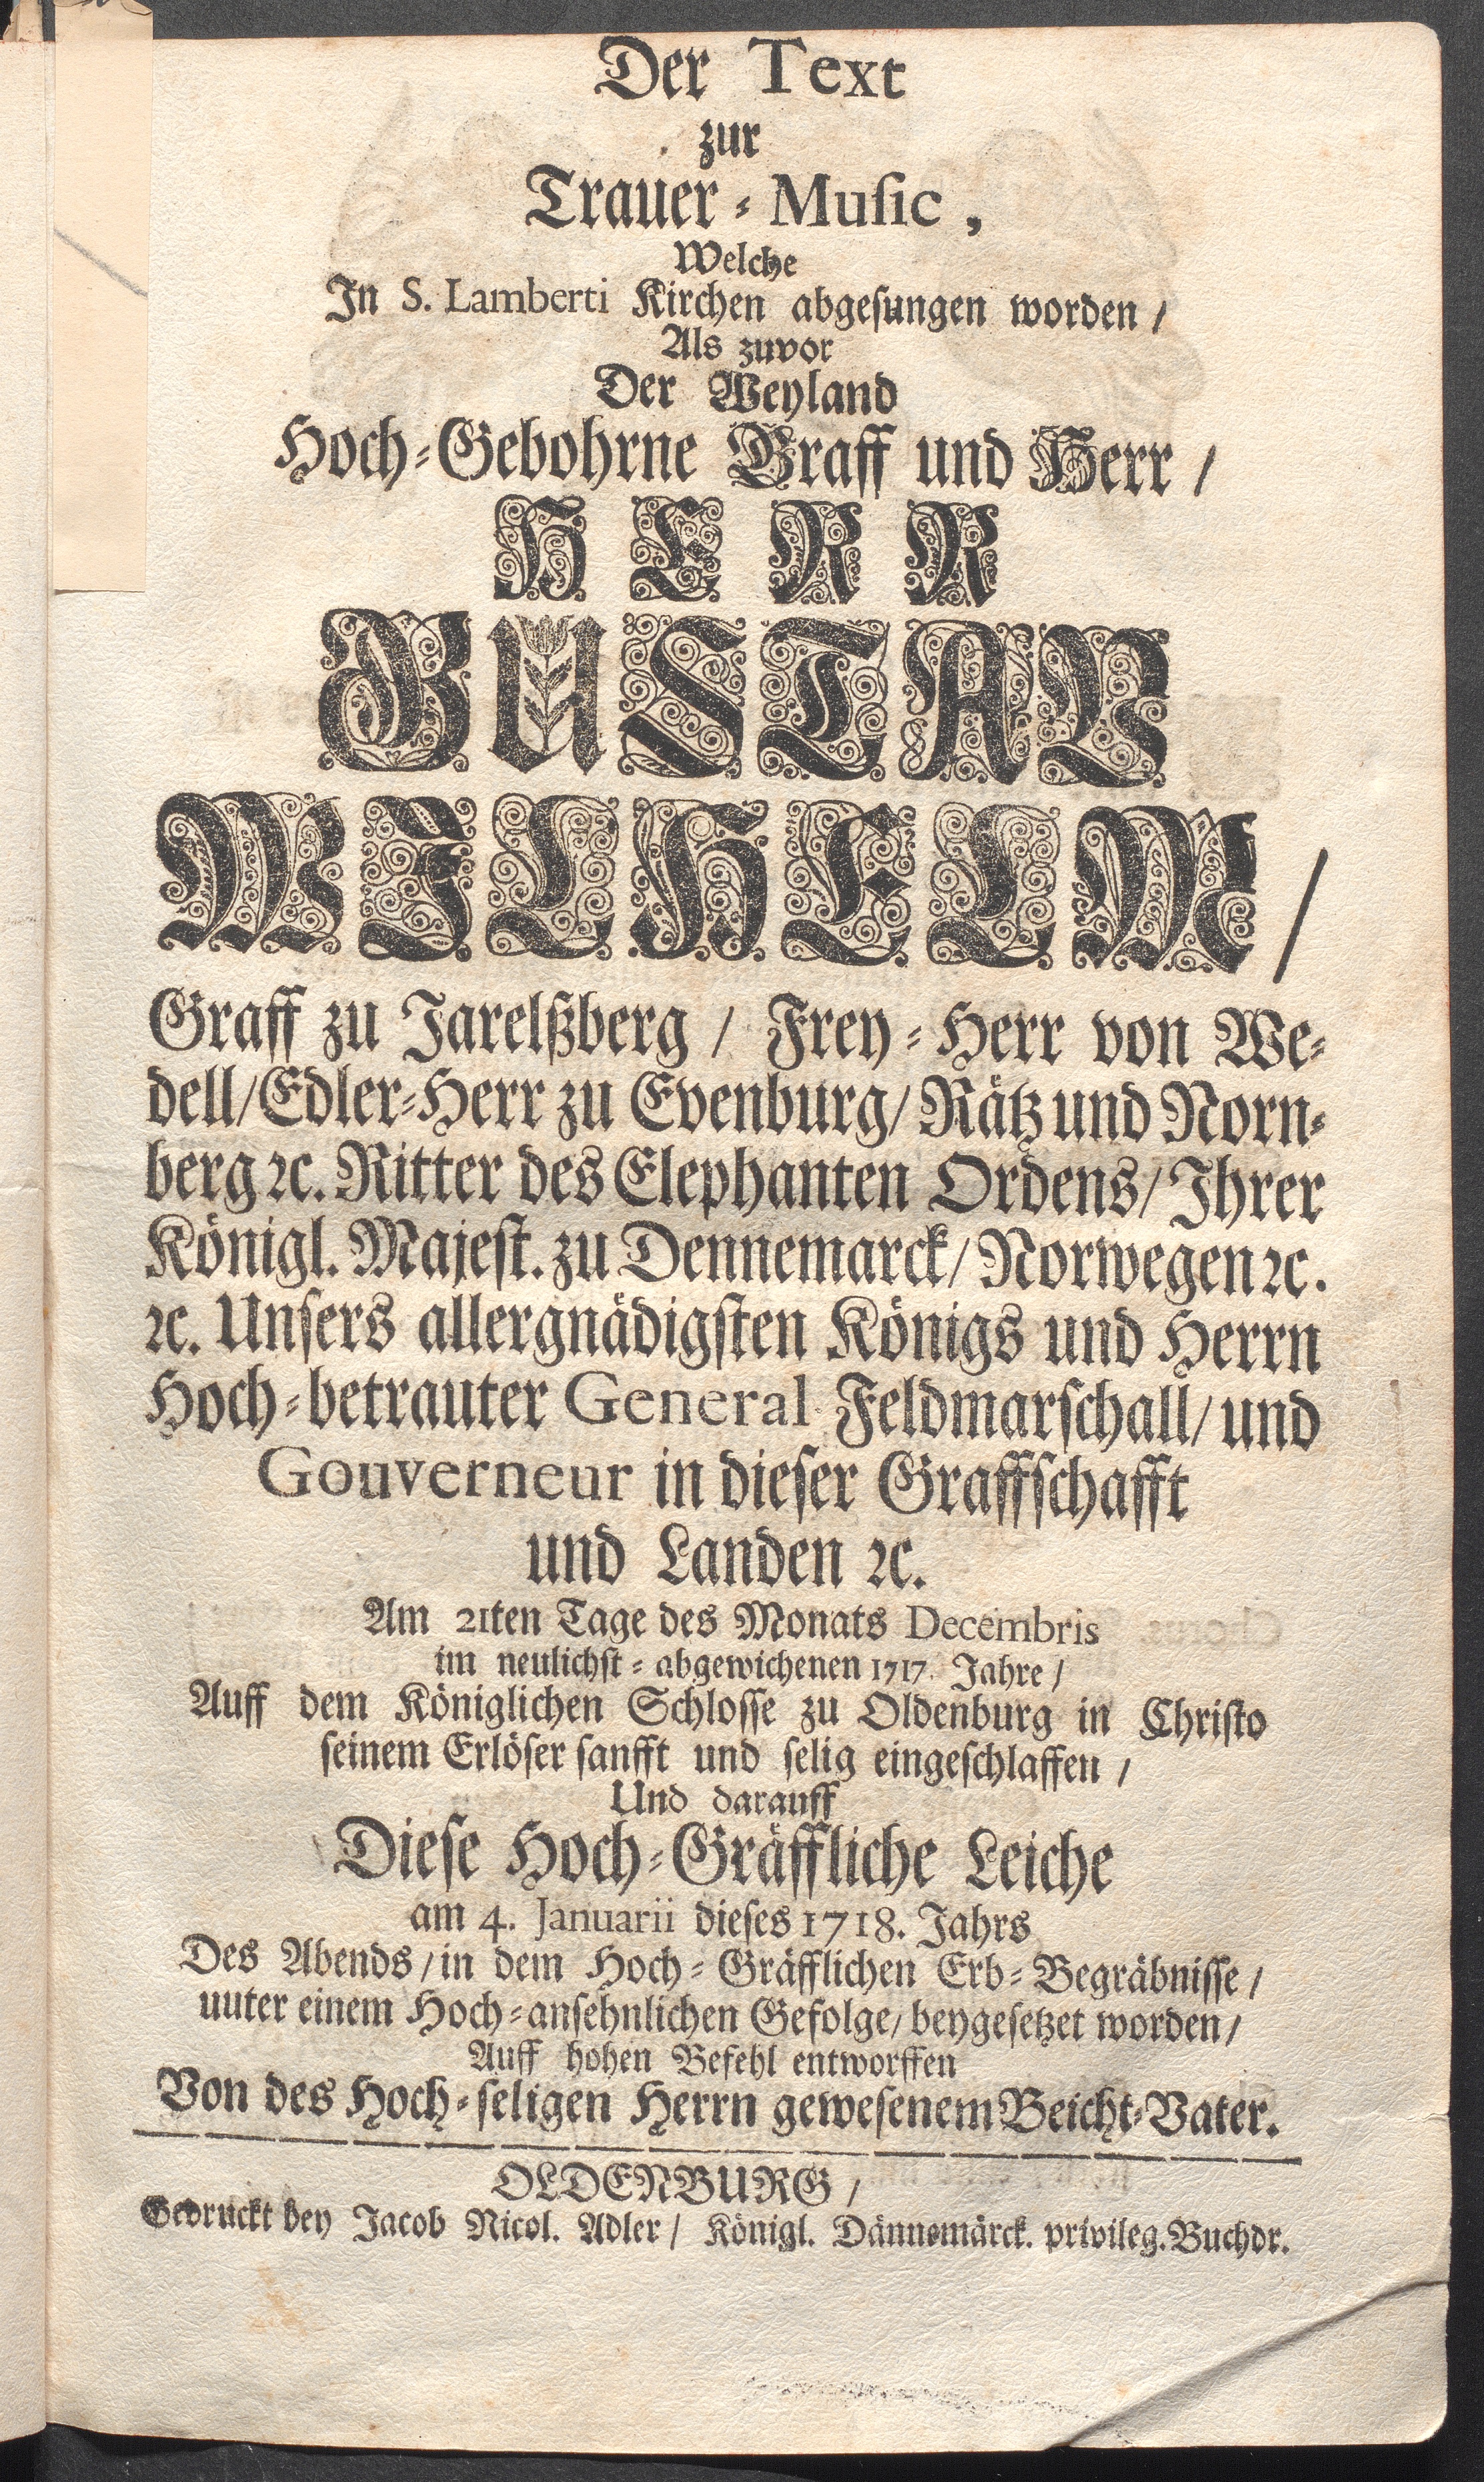 Der Text
zur
Trauer-Muſic,
Welche
In S. Lamberti Kirchen abgeſungen worden /
Als zuvor
Der Weyland
Hoch-Gebohrne Graff und Herr /
HERR
GUSTAV
WILHELM /
Graff zu Jarelßberg / Frey-Herr von We-
dell / Edler-Herr zu Evenburg / Rätz und Norn-
berg ꝛc. Ritter des Elephanten Ordens / Ihrer
Königl. Majeſt. zu Dennemarck / Norwegen ꝛc.
ꝛc. Unſers allergnädigſten Königs und Herrn
Hoch-betrauter General Feldmarſchall / und
Gouverneur in dieſer Graffſchafft
und Landen ꝛc.
Am 21ten Tage des Monats Decembris
im neulichſt-abgewichenen 1717. Jahre /
Auff dem Königlichen Schloſſe zu Oldenburg in Chriſto
ſeinem Erlöſer ſanfft und ſelig eingeſchlaffen /
Und darauff
Dieſe Hoch-Gräffliche Leiche
am 4. Januarii dieſes 1718. Jahrs
Des Abends / in dem Hoch-Gräfflichen Erb-Begräbniſſe /
uuter einem Hoch-anſehnlichen Gefolge / beygeſetzet worden /
Auff hohen Befehl entworffen
Von des Hoch-ſeligen Herrn geweſenem Beicht-Vater.
OLDENBURG /
Gedruckt bey Jacob Nicol. Adler / Königl. Dännemärck. privileg. Buchdr.